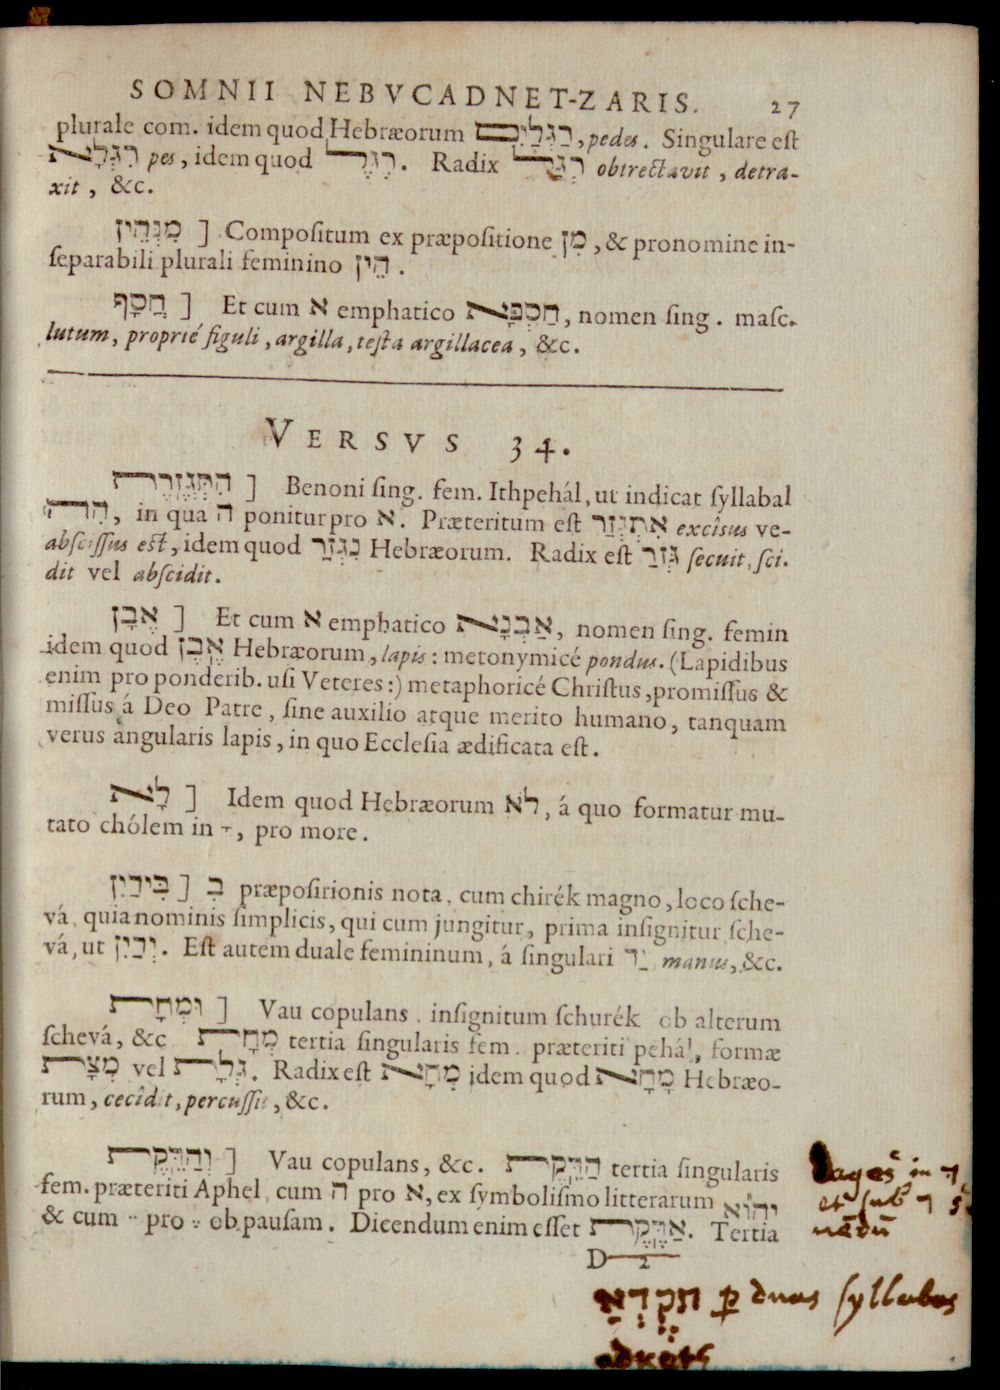 SOMNII NEBVCADNET-ZARIS. 27
plurale com. idem quod Hebræorum רַגְלַיִם, pedes. Singulare eſt
רִגְלָא pes, idem quod רֶגֶל. Radix רְגַל obtrectavit, detra-
xit, &c.
מִנְּהֵין ] Compoſitum ex præpoſitione מִן, & pronomine in-
ſeparabili plurali feminino הֵין.
חֲסָף ] Et cum א emphatico חַסְפָּא, nomen ſing. maſc.
lutum, proprié figuli, argilla, teſta argillacea, &c.
VERSVS 34.
הִתְגְּזֶרֶת ] Benoni ſing. fem. Ithpehál, ut indicat ſyllabal
הִת, in qua ה ponitur pro א. Præteritum eſt אִתְגְּזַר excîsus ve-
abſciſſus eſt, idem quod נִגְזַר Hebræorum. Radix eſt גְּזַר ſecuit, ſci.
dit vel abſcidit.
אֶבָן ] Et cum א emphatico אַבְנָא, nomen ſing. femin
idem quod אֶבֶן Hebræorum, lapis: metonymicé pondus. (Lapidibus
enim pro ponderib. uſi Veteres:) metaphoricé Chriſtus, promiſſus &
miſſus á Deo Patre, ſine auxilio atque merito humano, tanquam
verus angularis lapis, in quo Eccleſia ædificata eſt.
לָא ] Idem quod Hebræorum לֹא, á quo formatur mu-
tato chólem in ָ, pro more.
בִּידַיִן ] בְ præpoſirionis nota, cum chirék magno, loco ſche-
vá, quia nominis ſimplicis, qui cum jungitur, prima inſignitur ſche-
vá, ut יְדַיִן. Eſt autem duale femininum, á ſingulari יַד manus, &c.
וּמְחָת ] Vau copulans inſignitum ſchurék ob alterum
ſchevá, &c מְחָת tertia ſingularis fem. præteriti pehál, formæ
מְצָת vel גְּלָת. Radix eſt מְחָא idem quod מָחָא Hebræo-
rum, cecîdit, percuſſit, &c.
וְהַדֶּקֶת ] Vau copulans, &c. הַדֶּקֶת tertia ſingularis
fem. præteriti Aphel, cum ה pro א, ex ſymboliſmo litterarum יהוא
& cum ֶ pro ֵ ob pauſam. Dicendum enim eſſet אַדֶּקֶת. Tertia
D 2
in ד
et ſub ד
duas ſyllabas